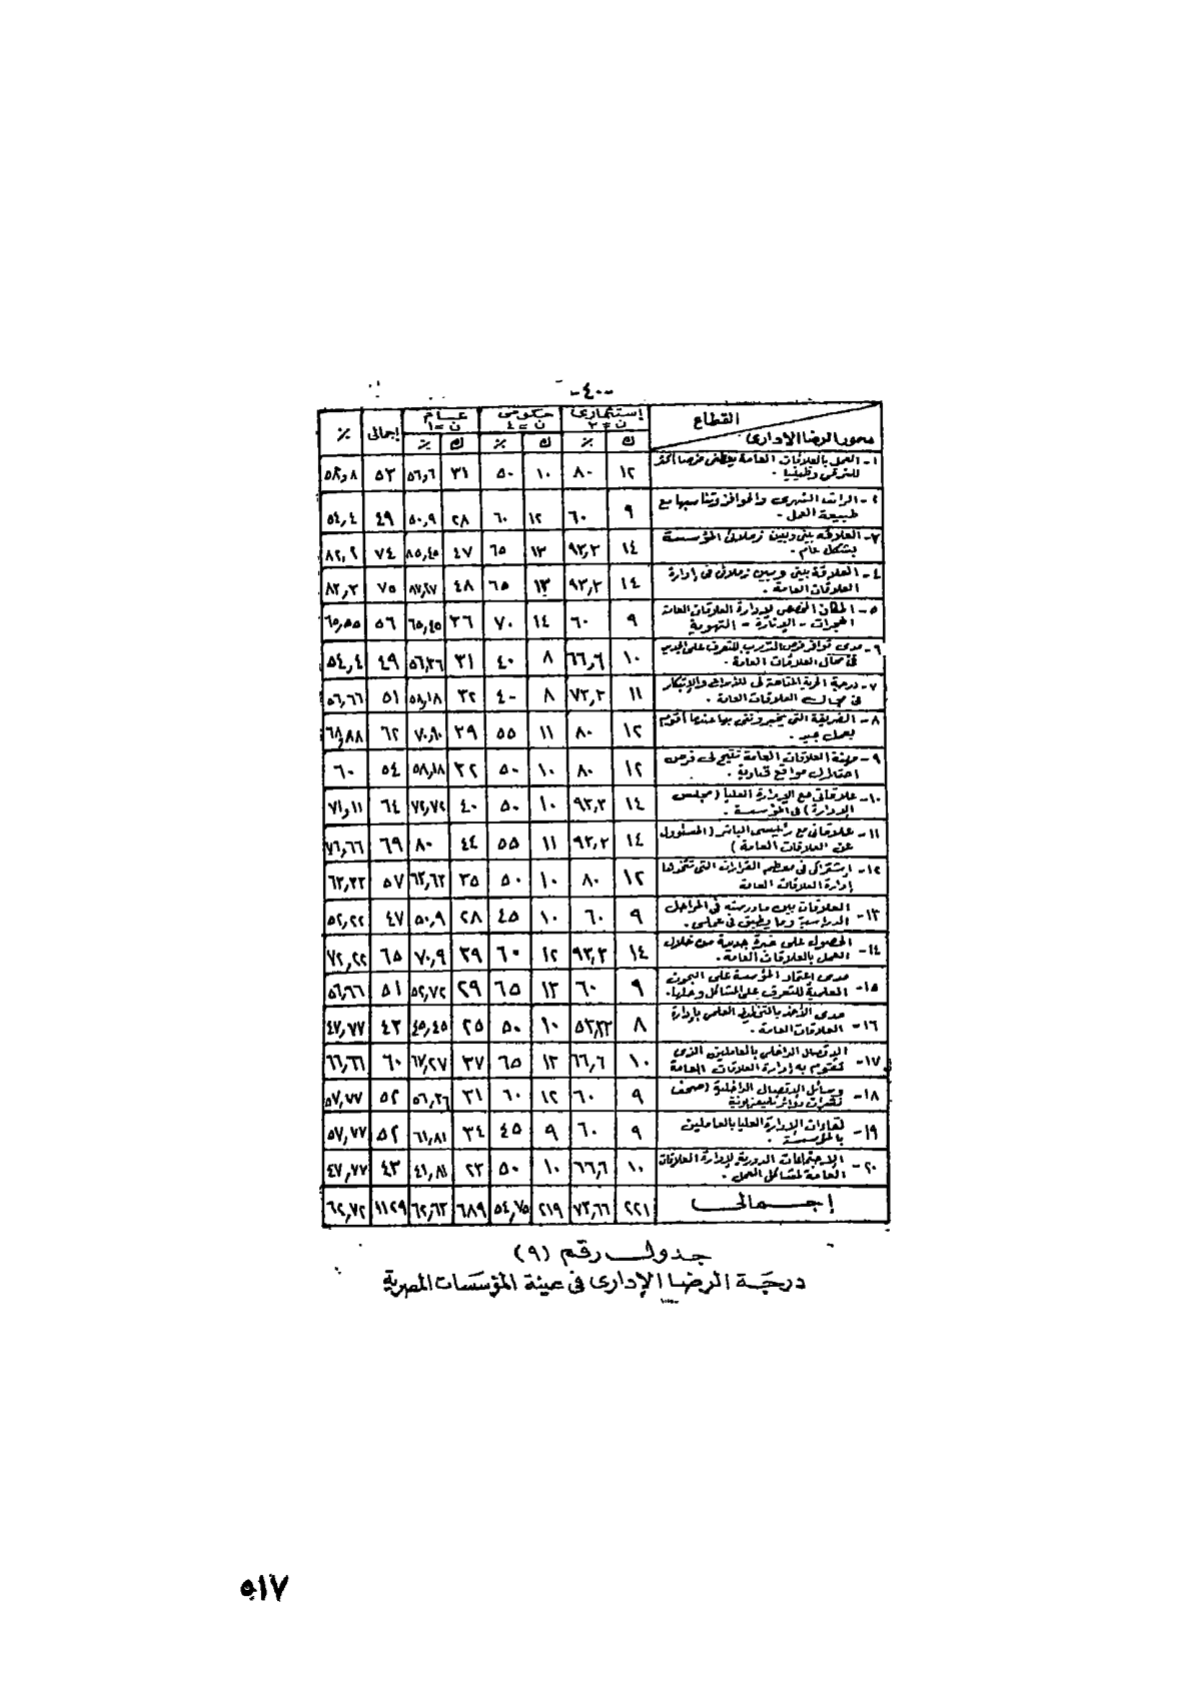 -٤٠-
القطاع
محور الرضا الإدارى
إستثمارى ن = ٣ ك ٪
حكومى ن = ٤ ك ٪
عـــام ك ٪
إجمالى
٪
١- العمل بالعلاقات العامة يعطى فرصا أكثر للترقى وظيفيا . ١٢ ٨٠ ١٠ ٥٠ ٣١ ٥٦,٦ ٥٣ ٥٨,٨
٢- الراتب الشهرى والحوافز وتناسبها مع طبيعة العمل . ٩ ٦٠ ١٢ ٦٠ ٢٨ ٥٠,٩ ٤٩ ٥٤,٤
٣- العلاقة بينى وبين زملائى المؤسسة بشكل عام . ١٤ ٩٣,٣ ١٣ ٦٥ ٤٧ ٨٥,٤٥ ٧٤ ٨٢,٢
٤- العلاقة بينى وبين زملائى فى إدارة العلاقات العامة . ١٤ ٩٣,٣ ١٣ ٦٥ ٤٨ ٨٧,٢٧ ٧٥ ٨٣,٣
٥- المكان المخصص لإدارة العلاقات العامة الحجرات - الإنارة - التهوية ٩ ٦٠ ١٤ ٧٠ ٣٦ ٦٥,٤٥ ٥٦ ٦٥,٥٥
٦- مدى توافر فرص التدريب للتعرف على الجديد فى مجال العلاقات العامة . ١٠ ٦٦,٦ ٨ ٤٠ ٣١ ٥٦,٣٦ ٤٩ ٥٤,٤
٧- درجة الحرية المتاحة لى للإبداع والإبتكار فى مجال العلاقات العامة . ١١ ٧٣,٣ ٨ ٤٠ ٣٢ ٥٨,١٨ ٥١ ٥٦,٦٦
٨- الطريقة التى يخبروننى بها عندما أقوم بعمل جيد . ١٢ ٨٠ ١١ ٥٥ ٣٩ ٧٠,٩٠ ٦٢ ٦٨,٨٨
٩- مهنة العلاقات العامة تتيح لى فرص احتلال مواقع قيادية . ١٢ ٨٠ ١٠ ٥٠ ٣٢ ٥٨,١٨ ٥٤ ٦٠
١٠- علاقاتى مع الإدارة العليا (مجلس الإدارة) فى المؤسسة . ١٤ ٩٣,٣ ١٠ ٥٠ ٤٠ ٧٢,٧٢ ٦٤ ٧١,١١
١١- علاقاتى مع رئيسى المباشر (المسئوول عن العلاقات العامة) ١٤ ٩٣,٣ ١١ ٥٥ ٤٤ ٨٠ ٦٩ ٧٦,٦٦
١٢- إشتراكى فى معظم القرارات التى تتخذها إدارة العلاقات العامة ١٢ ٨٠ ١٠ ٥٠ ٣٥ ٦٣,٦٣ ٥٧ ٦٣,٣٣
١٣- العلاقات بين مادرسته فى المراحل الدراسية وما يطبق فى عملى . ٩ ٦٠ ١٠ ٤٥ ٢٨ ٥٠,٩ ٤٧ ٥٢,٢٢
١٤- الحصول على خبرة جديدة من خلال العمل بالعلاقات العامة . ١٤ ٩٣,٣ ١٢ ٦٠ ٣٩ ٧٠,٩ ٦٥ ٧٢,٢٢
١٥- مدى إعتماد المؤسسة على البحوث العلمية للتعرف على المشاكل وحلها . ٩ ٦٠ ١٣ ٦٥ ٢٩ ٥٢,٧٢ ٥١ ٥٦,٦٦
١٦- مدى الأخذ بالتخطيط العلمى بإدارة العلاقات العامة . ٨ ٥٣,٣٣ ١٠ ٥٠ ٢٥ ٤٥,٤٥ ٤٣ ٤٧,٧٧
١٧- الإتصال الداخلى بالعاملين الذى تقوم به إدارة العلاقات العامة ١٠ ٦٦,٦ ١٣ ٦٥ ٣٧ ٦٧,٢٧ ٦٠ ٦٦,٦٦
١٨- وسائل الإتصال الداخلية (صحف نشرات دوائر تليفزيونية ٩ ٦٠ ١٢ ٦٠ ٣١ ٥٦,٣٦ ٥٢ ٥٧,٧٧
١٩- لقاءات الإدارة العليا بالعاملين بالمؤسسة . ٩ ٦٠ ٩ ٤٥ ٣٤ ٦١,٨١ ٥٢ ٥٧,٧٧
٢٠- الإجتماعات الدورية لإدارة العلاقات العامة لمشاكل العمل . ١٠ ٦٦,٦ ١٠ ٥٠ ٢٣ ٤١,٨١ ٤٣ ٤٧,٧٧
إجـــمالى ٢٢١ ٧٣,٦٦ ٢١٩ ٥٤,٧٥ ٦٨٩ ٦٢,٦٣ ١١٢٩ ٦٢,٧٢
جدول رقم (٩)
درجة الرضا الإدارى فى عينة المؤسسات المصرية
٥١٧